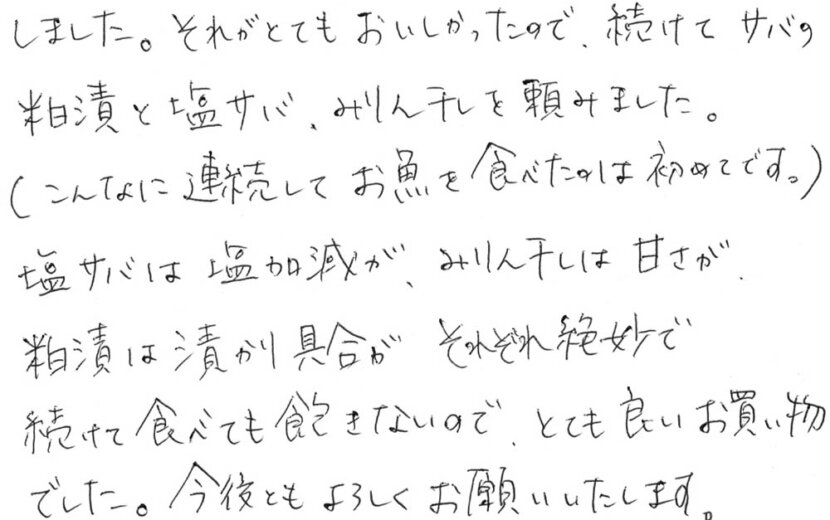 しました。それがとてもおいしかったので、続けてサバの
粕漬と塩サバ、みりん干しを頼みました。
(こんなに連続してお魚を食べたのは初めてです。)
塩サバは塩加減が、みりん干しは甘さが、
粕漬は漬かり具合がそれぞれ絶妙で
続けて食べても飽きないので、とても良いお買い物
でした。今後ともよろしくお願いいたします。